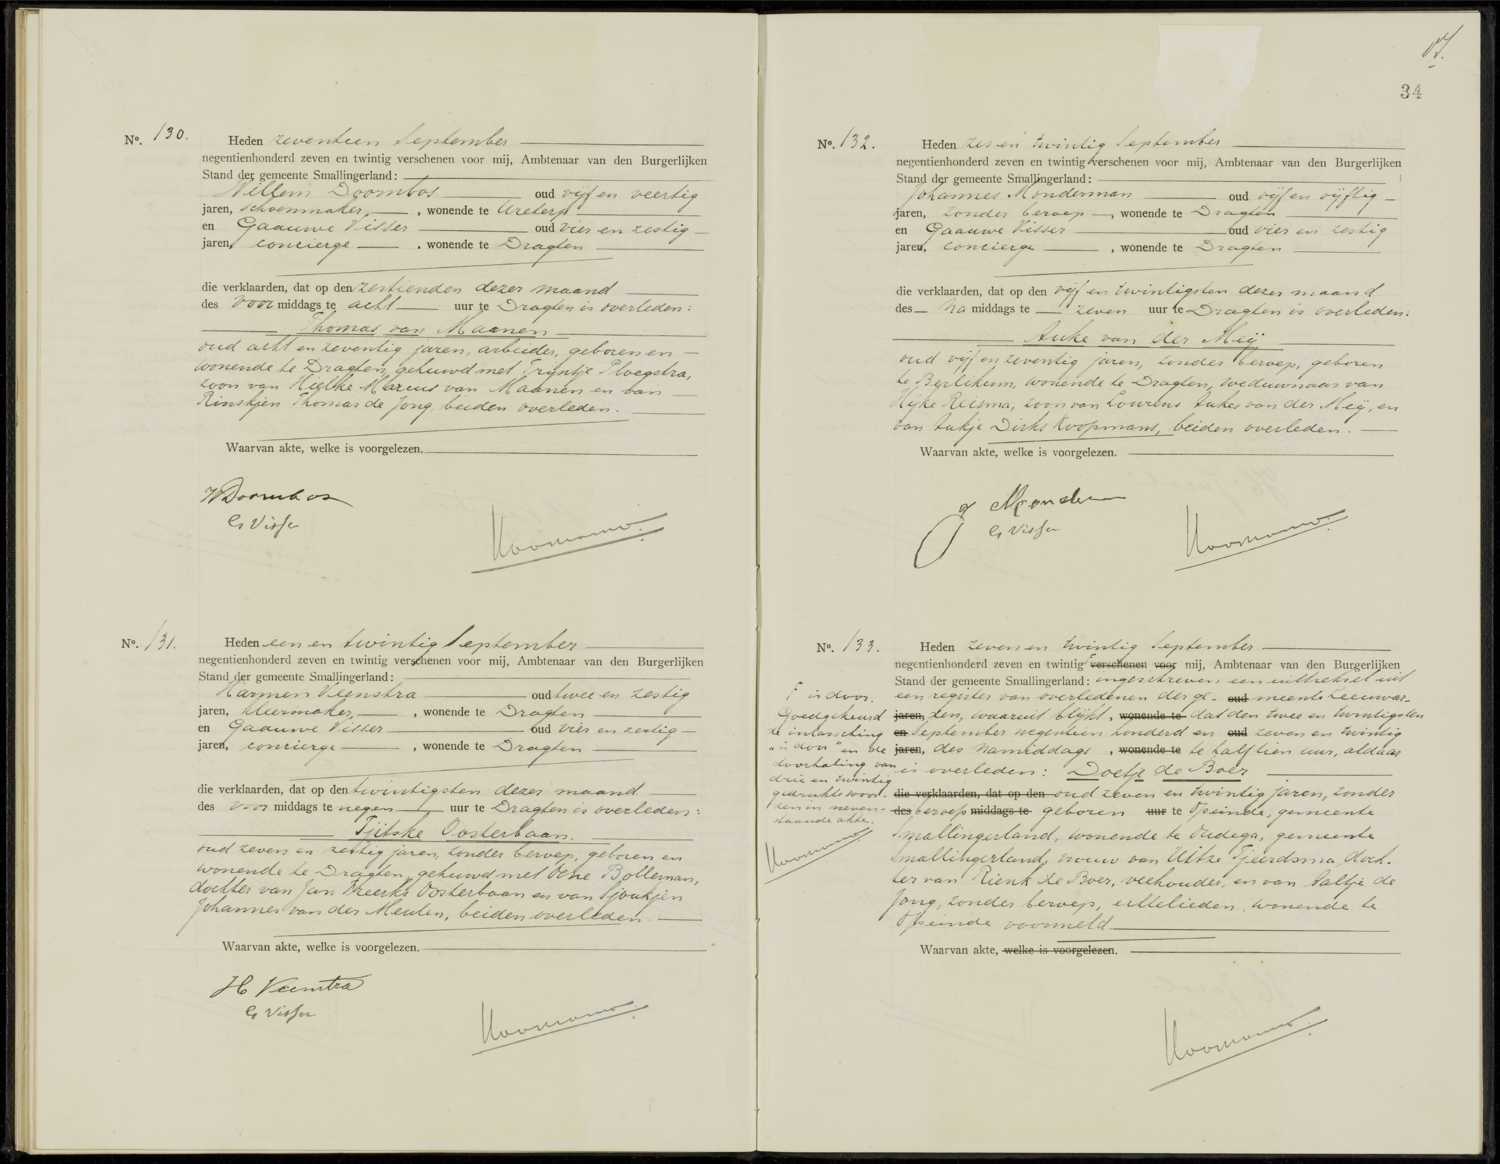 No. 130. Heden zeventien September
negentienhonderd zeven en twintig verschenen voor mij, Ambtenaar van den Burgerlijken
Stand der gemeente Smallingerland:
Willem Doornbos oud vijf en veertig
jaren, schoenmaker, , wonende te Ureterp
en Gaauwe Visser oud vier en zestig
jaren, concierge , wonende te Dragten
die verklaarden, dat op den zestienden dezer maand
des voor middags te acht uur te Dragten is overleden:
Thomas van Maanen
oud acht en zeventig jaren, arbeider, geboren en
wonende te Dragten, gehuwd met Trijntje Ploegstra,
zoon van Hielke Marcus van Maanen en van
Rinskjen Thomas de Jong, beiden overleden.
Waarvan akte, welke is voorgelezen.
W Doornbos
G Visser
No. 131. Heden een en twintig September
negentienhonderd zeven en twintig verschenen voor mij, Ambtenaar van den Burgerlijken
Stand der gemeente Smallingerland:
Harmen Veenstra oud twee en zestig
jaren, kleermaker, , wonende te Dragten
en Gaauwe Visser oud vier en zestig
jaren, concierge , wonende te Dragten
die verklaarden, dat op den twintigsten dezer maand
des voor middags te negen uur te Dragten is overleden:
Tjitske Oosterbaan.
oud zeven en zestig jaren, zonder beroep, geboren en
wonende te Dragten, gehuwd met Bolleman,
dochter van Jan Oosterbaan en van Sjoukjen
Johannes van der Meulen, beiden overleden.
Waarvan akte, welke is voorgelezen.
H Veenstra
G Visser
34
No. 132. Heden zes en twintig September
negentienhonderd zeven en twintig verschenen voor mij, Ambtenaar van den Burgerlijken
Stand der gemeente Smallingerland:
Johannes Monderman oud vijf en vijftig
jaren, zonder beroep , wonende te Dragten
en Gaauwe Visser oud vier en zestig
jaren, concierge , wonende te Dragten
die verklaarden, dat op den vijf en twintigsten dezer maand
des na middags te zeven uur te Dragten is overleden:
Auke van der Meij
oud vijf en zeventig jaren, zonder beroep, geboren
te Berlikum, wonende te Dragten, weduwnaar van
Reitsma, zoon van Lourens Aukes van der Meij, en
van Aukje Dirks Koopmans, beiden overleden.
Waarvan akte, welke is voorgelezen.
J Monderman
G Visser
No. 133. Heden zeven en twintig September
negentienhonderd zeven en twintig verschenen voor mij, Ambtenaar van den Burgerlijken
Stand der gemeente Smallingerland: ingeschreven een uittreksel uit
een register van overledenen der ge- oud meente Leeuwar-
jaren, den, waaruit blijkt, wonende te dat den twee en twintigsten
en September negentien honderd en oud zeven en twintig
jaren, des namiddags , wonende te te half tien uur, aldaar
is overleden: Doetje de Boer
die verklaarden, dat op den oud zeven en twintig jaren, zonder
des beroep middags te geboren uur te Opeinde, gemeente
Smallingerland, wonende te Oudega, gemeente
Smallingerland, vrouw van Uitze Tjeerdsma, doch-
ter van Rienk de Boer, veehouder, en van Baltje de
Jong, zonder beroep, echtelieden, wonende te
Opeinde voormeld
Waarvan akte, welke is voorgelezen.
is door.
Goedgekeurd
de inlassching
"is door" en de
doorhaling van
drie en twintig
gedrukte woor-
den in neven-
staande akte.